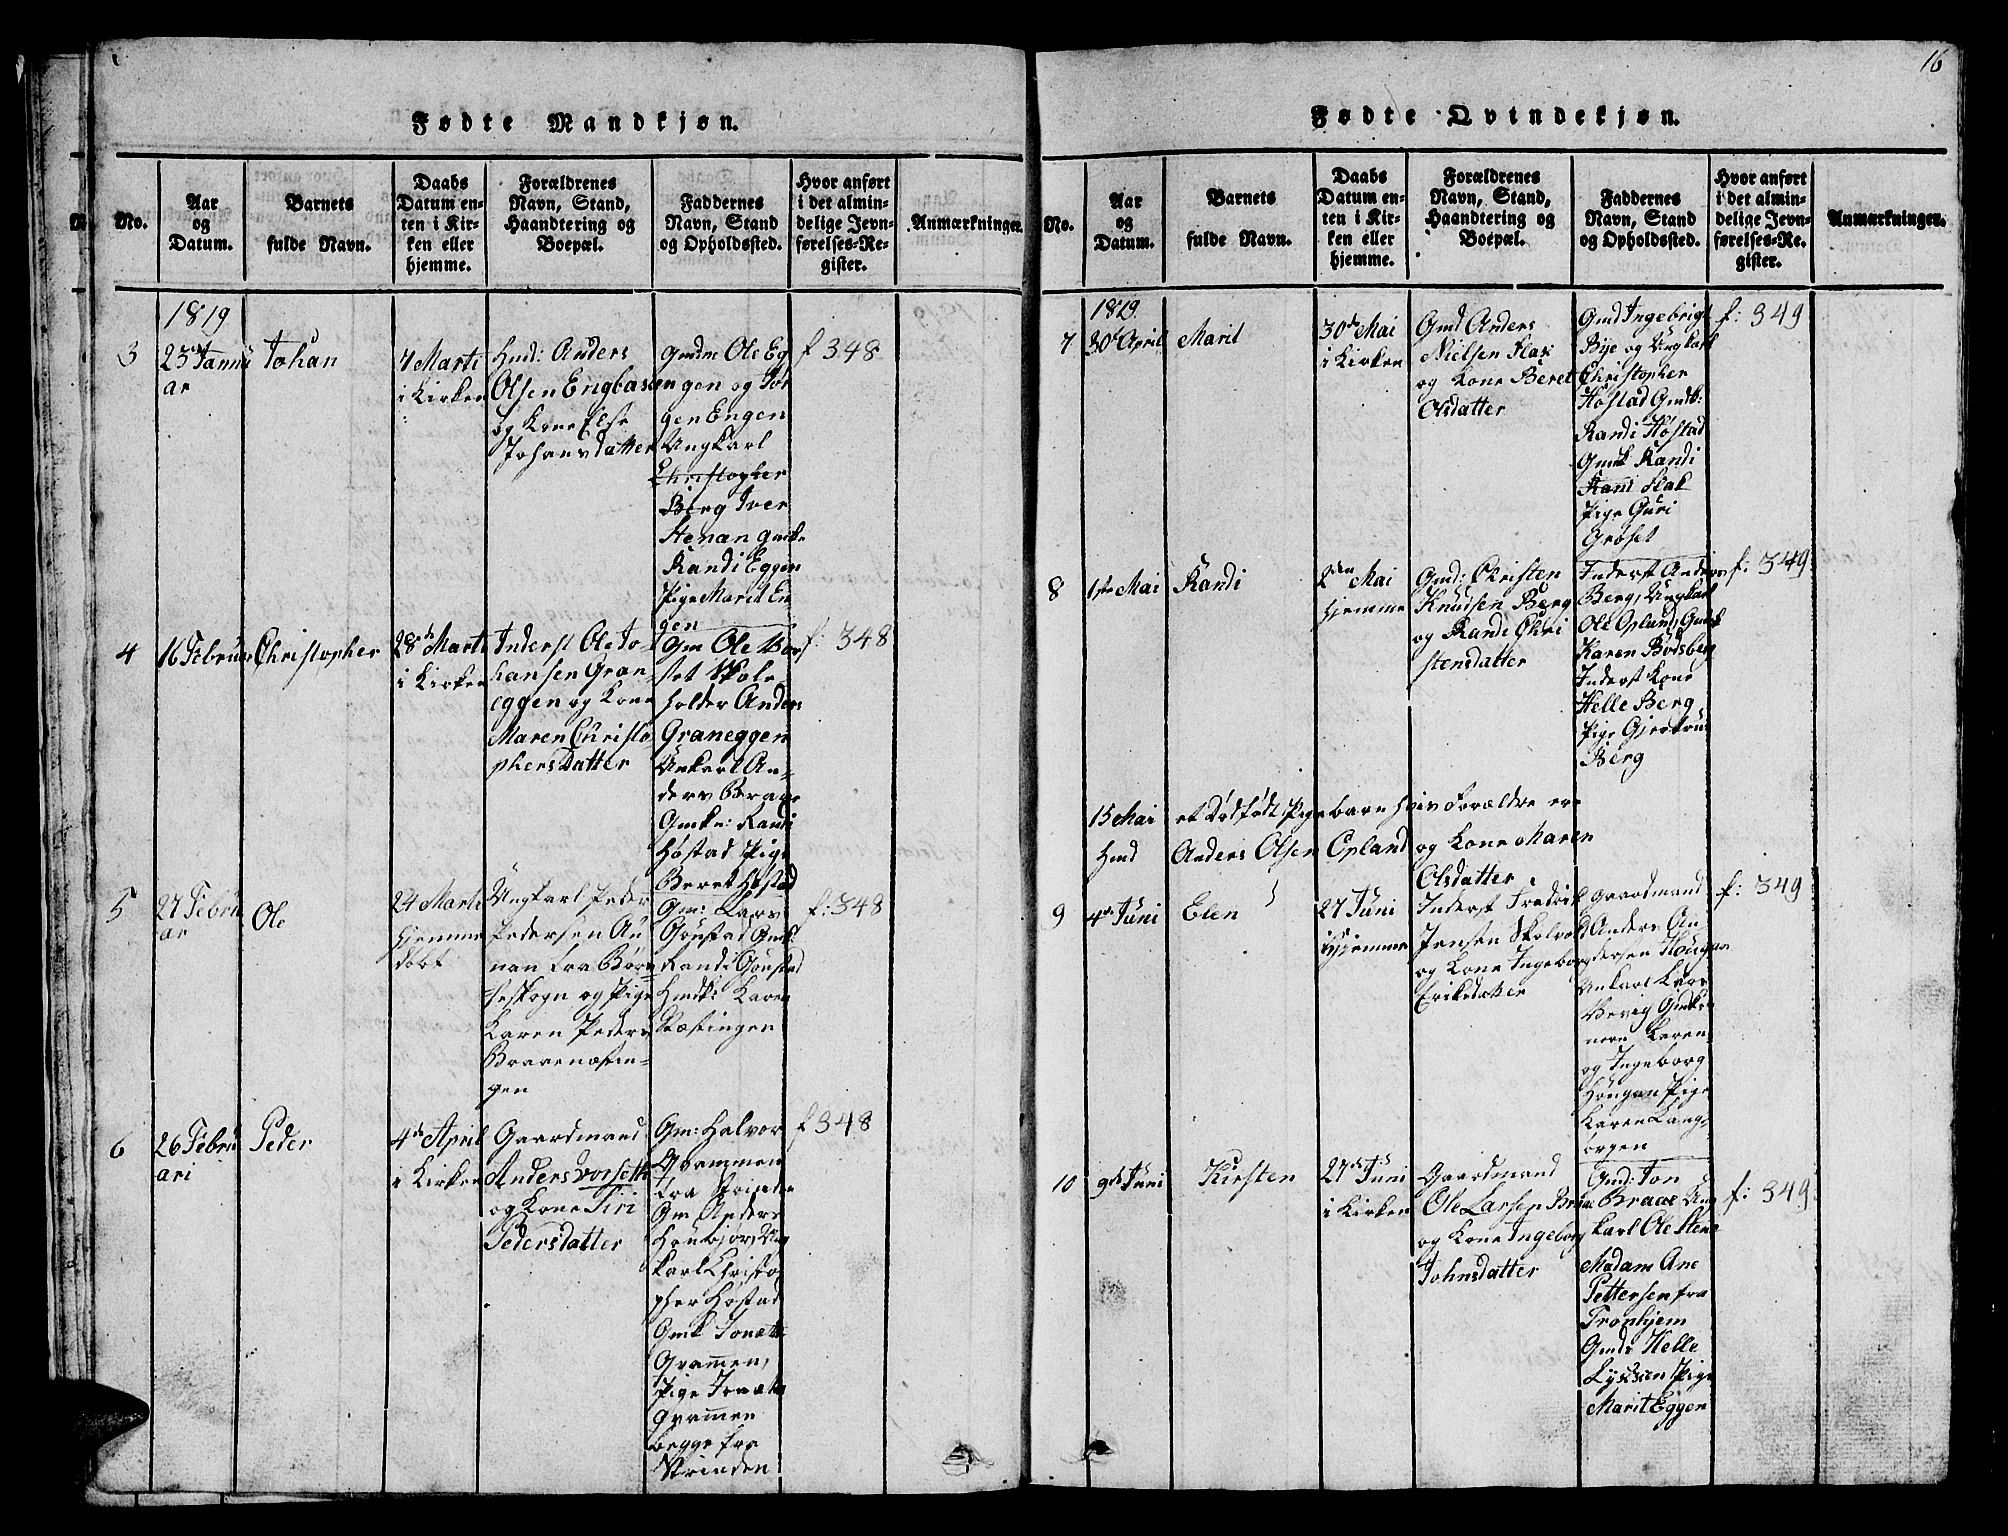 16
Fødte Mandkjøn.
No.
Aar
og
Datum.
Barnets
fulde Navn.
Daabs
Datum en-
ten i Kir-
ken eller
hjemme.
Forældrenes
Navn, Stand,
Haandtering og
Boepæl.
Faddernes
Navn, Stand
og Opholdssted.
Hvor anført
i det almin-
delige Jevn-
førelses-Re-
gister.
Anmærkninger.
1819
3
23 Janu
ar
Johan
7 Marti
i Kirken
Hmd: Anders
Olsen Engbasen
og Kone Else
Johansdatter
Gmdm Ole Eg
gen og Jor
gen Engen
Ungkarl
Christopher
Berg Iver
Stenan Gmke
Randi Eggen
Pige Marit En-
gen
f 348
4
16 Februar
Christopher
28de Marti
i Kirken
Inderst Ole Jo-
hansen Gran-
eggen og Kone
Maren Christo
phersdatter
Gm Ole Bor
set Skole
holder Anders
Graneggen
Unkarl An-
ders Braae
Gmke: Randi
Høstad Pige
Beret Høstad
f: 348
5
27 Febru
ar
Ole
24 Marti
Hjemme
døbt
Ungkarl Peder
Pedersen Au
nan fra Børs
seskogn og Pige
Karen Peders
Braaenæsin-
gen
Gm: Lars
Gaustad Gmk:
Randi Gaustad
Hmdk: Karen
Næsingen
f: 348
6
26 Febru
ari
Peder
4de April
i Kirken
Gaardmand
Anders Vorseth
og Kone Siri
Pedersdatter
Gm: Halvor
Grammen
fra Strinden
Gm Anders
Ung
karl Christo
pher Høstad
Gmk
Gramen,
Pige
Gramen
begge fra
Strinden
f 348
Fødte Qvindekjøn.
No.
Aar
og
Datum.
Barnets
fulde Navn.
Daabs
Datum en-
ten i Kir-
ken eller
hjemme.
Forældrenes
Navn, Stand,
Haandtering og
Boepæl.
Faddernes
Navn, Stand
og Opholdssted.
Hvor anført
i det almin-
delige Jevn-
førelses-Re-
gister.
Anmærkninger.
1819
7
30te April
Marit
30de Mai
i Kirken
Gmd Anders
Nielsen Flak
og Kone Beret
Olsdatter
Gmd Ingebrigt
Bye og Ungkarl
Christopher
Høstad Gmdk:
Randi Høstad
Gmk Randi
Flak
Pige Guri
Grøset
f: 349
8
1ste Mai
Randi
2den Mai
Hjemme
Gmd: Christen
Knudsen Berg
og Randi Chri
stensdatter
Inderst Anders
Berg, Ungkarl
Ole Opland, Gmk
Karen Bodsberg
Inderst Kone
Helle Berg
Pige Gjertrud
Berg
f: 349
15 Mai
et Dødfødt Pigebarn hvis Forældre ere
Hmd Anders Olsen Opland og Kone Maren
Olsdatter
9
4de Juni
Elen
27 Juni
Hjemme
Inderst Fredrik
Jensen Skolvold
og Kone Ingeborg
Eriksdatter
Gaardmand
Anders An
dersen Hougan
Unkarl Lars
Gmdko
nerne Karen
og Ingeborg
Hougan Pige
Karen Lang-
ørgen
f: 349
10
9de Juni
Kirsten
27de Juni
i Kirken
Gaardmand
Ole Larsen Braae
og Kone Ingeborg
Johnsdatter
Gmd: Jon
Braae Ung
karl Ole Stene
Madam Ane
Pettersen fra
Tronhjem
Gmds Helle
Pige
Marit Eggen
f: 349